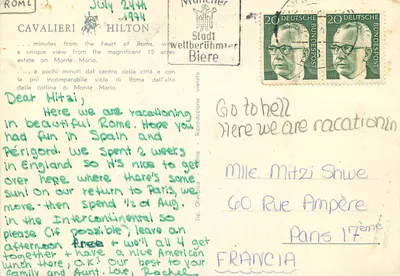 ROME
July 24th
1974
CAVALIERI HILTON
... minutes from the heart of Rome, with
a unique view from the magnificent 15 acres
estate on Monte Mario.
... a pochi minuti dal centro della città e con
la più incomparabile vista di Roma dall'alto
della collina di Monte Mario.
Dear Mitzi,
Here we are vacationing
in beautiful Rome. Hope you
had fun in Spain and
Périgord. We spent 2 weeks
in England so it's nice to get
over here where there's some
sun! On our return to Paris, we
move - then spend 1/2 of Aug.
in the Intercontinental so
please (if possible) leave an
afternoon free + we'll all 4 get
together + have a nice American
lunch there, O.K.! Our best to your
family and Aunt. Love, Rachel
Riproduzione vietata
München
Stadt
weltberühmter
Biere
20
DEUTSCHE BUNDESPOST
20
DEUTSCHE BUNDESPOST
Go to hell
Here we are vacationin
Mlle. Mitzi Shwe
60 Rue Ampère
Paris 17ème
FRANCIA